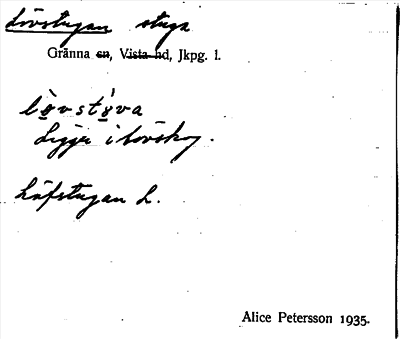 Lövstugan stuga
Gränna sn, Vista hd, Jkpg. l.
lo̲vsto̲va
Ligger i lövskog.
Löfstugan L.
Alice Petersson 1935.